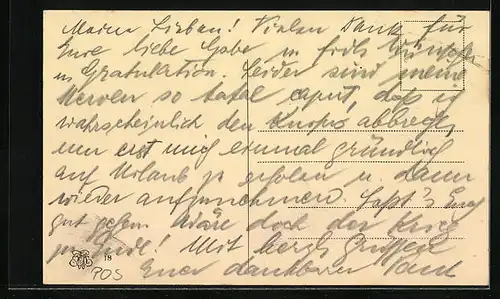 Meine Lieben! Vielen Dank für
Eure liebe Gabe u. frdl. Wünsche
u. Gratulation. Leider sind meine
Nerven so total caput, daß ich
wahrscheinlich den Kursus abbreche,
um erst mich einmal gründlich
auf Urlaub zu erholen u. dann
wieder aufzunehmen. Laßt's Euch
gut gehen. Wäre doch der Krieg
zu Ende! Mit herzl. Grüßen
18 Euer dankbarer Paul
POS